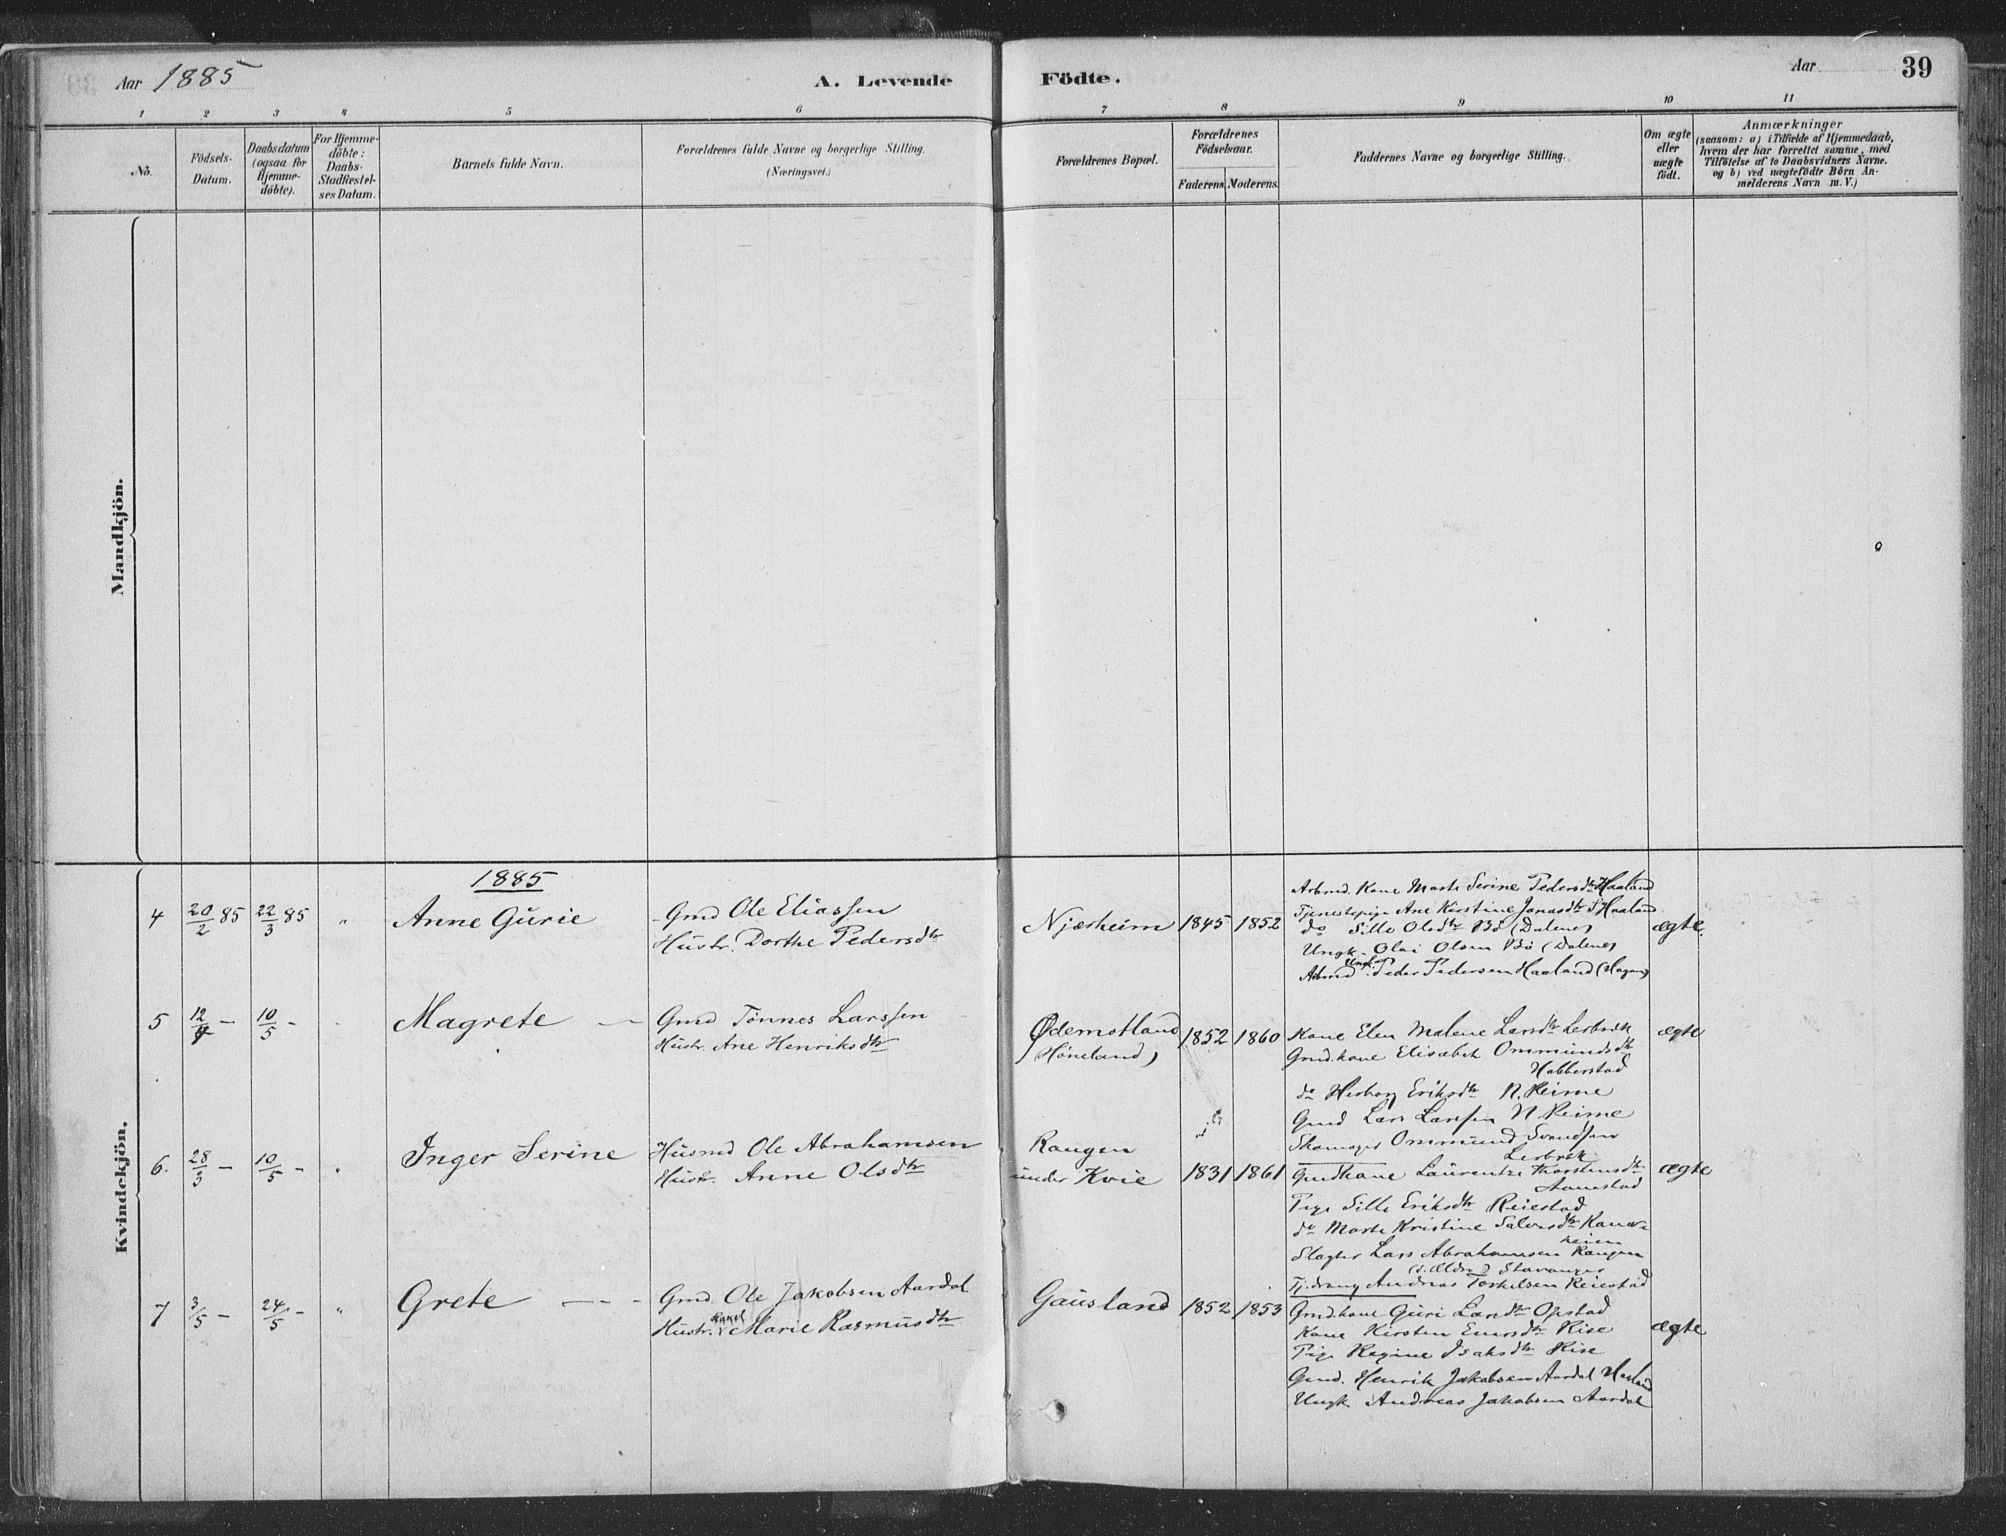 Aar 1885
A. Levende Födte.
Aar 39
1 2 3 4 5 6 7 8 9 10 11
No.
Födsels-
Datum.
Daabsdatum
(ogsaa for
Hjemme-
döbte).
For Hjemme-
döbte:
Daabs-
Stadfestel-
ses Datum.
Barnets fulde Navn.
Forældrenes fulde Navne og borgerlige Stilling.
(Næringsvei.)
Forældrenes Bopæl.
Forældrenes
Födselsaar.
Faderens. Moderens.
Faddernes Navne og borgerlige Stilling.
Om ægte
eller
uægte
født.
Anmærkninger
(saasom: a) i Tilfælde af Hjemmedaab,
hvem der har forrettet samme, med
Tilföielse af to Daabsvidners Navne.
og b) ved uægtefödte Börn An-
melderens Navn m. V.)
Mandkjön.
Kvindekjön.
1885
4 20/2 85 22/3 85 "
Anne Gurie
Gmd Ole Eliassen
Hustr. Dorthe Pedersdtr
Njærheim 1845 1852
Arbmd. Kone Marte Serine Pedersdtr Haaland
Tjenestepige Ane Kirstine Jonasdtr S. Haaland
do Sille Olsdtr Bø (Dalene)
Ungk. Olai Olsen Bø (Dalene)
Arbmd Ungk. Peder Pedersen Haaland (Hagen)
ægte.
5 12/4 - 10/5 -
Magrete —
Gmd Tønnes Larssen
Hustr. Ane Henriksdtr
Ødemotland
(Høneland)
1852 1860
Kone Elen Malene Larsdtr Lerbrek
Gmd.kone Elisabet Ommundsdtr
Hobberstad
do Herborg Eriksdtr N. Reime
Gmd Lars Larssen N. Reime
Skomager Ommund Svendsen
Lerbrek
ægte
6. 28/3 - 10/5 - "
Inger Serine
Husmd Ole Abrahamsen
Hustr. Anne Olsdtr
Raugen
under Kvie
1831 1861
Gmdkone Laurentze Thorstensdtr
Aanestad
Pige Sille Eriksdtr Reiestad
do Marte Kristine Salvesdtr Kana-
heien
Slagter Lars Abrahamsen Raugen
Stavanger
Tj.dreng Andreas Torkelsen Reiestad
ægte
7 3/5 - 24/5 - "
Grete — - -
Gmd. Ole Jakobsen Aardal
Hustr. Marie Rasmusdtr
Gausland 1852 1853
Gmd.kone Guri Larsdtr Opstad
Kone Kirsten Einarsdtr Rise
Pige Regine Isaksdtr Rise
Gmd. Henrik Jakobsen Aardal Haaland
Ungk Andreas Jakobsen Aardal
ægte